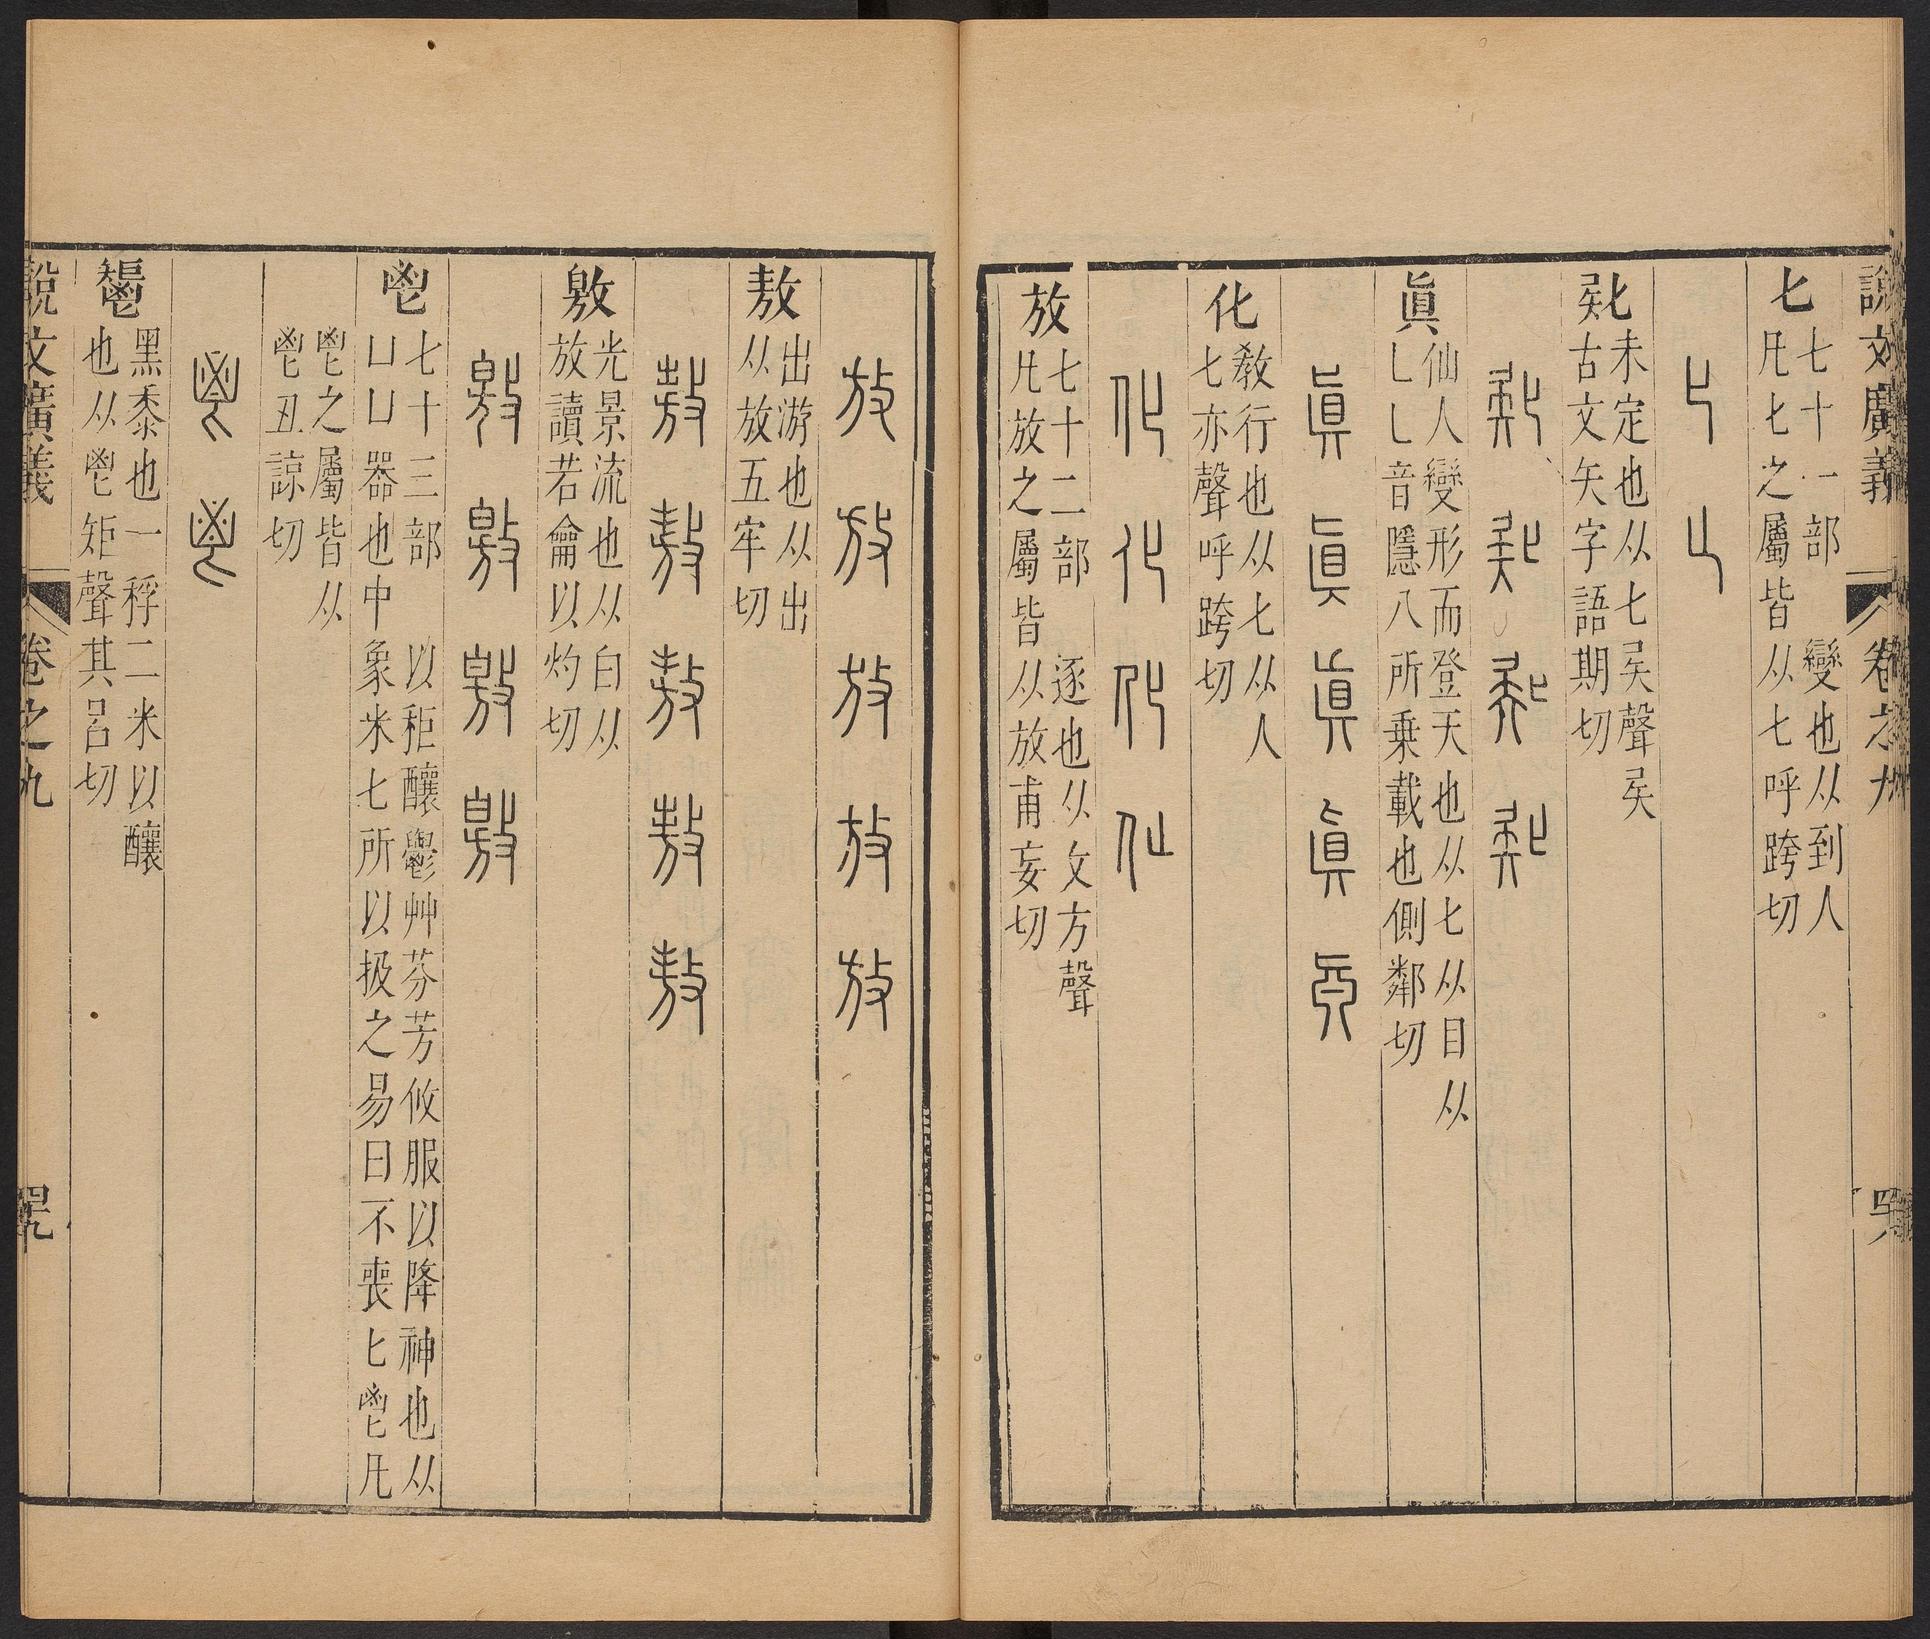 說文廣義 卷之九 四八
匕
七十一部 變也从到人
凡匕之屬皆从七呼跨切
𠤗
未定也从七𠤕聲𠤕
古文矢字語期切
眞
仙人變形而登天也从匕从目从
乚乚音隱八所乗載也側鄰切
眞眞眞眞
化
教行也从七从人
七亦聲呼跨切
化化化化
放
七十二部 逐也从攵方聲
凡放之屬皆从放甫妄切
放放放放放
敖
出游也从出
从放五牢切
敖敖敖敖敖
敫
光景流也从白从
放讀若龠以灼切
敫敫敫敫
鬯
七十三部 以秬釀鬱艸芬芳攸服以降神也从
凵凵器也中象米七所以扱之易曰不喪匕鬯凡
鬯之屬皆从
鬯丑諒切
鬯鬯
𩰤
黑黍也一稃二米以釀
也从鬯矩聲其呂切
說文廣義 卷之九 四九